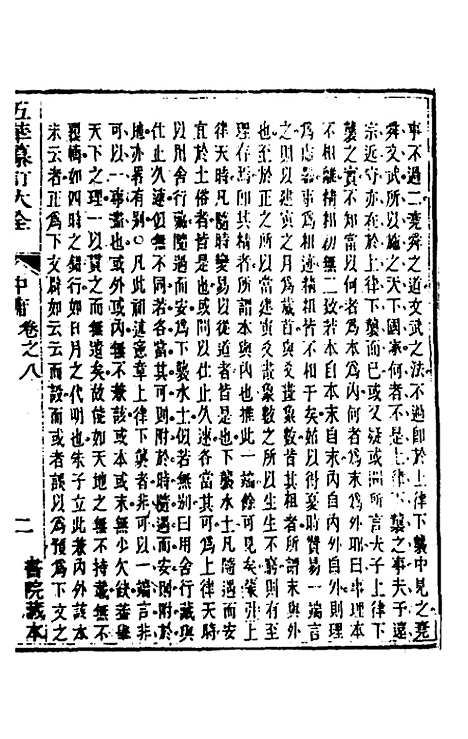 事不過二堯舜之道文武之法不過即於上律下襲中見之堯
舜文武所以施之天下國家何者不是上律下襲之事夫子遠
宗近守亦在於上律下襲而已或又疑或問所言夫子上律下
襲之實不知當以何者為本為內何者為末為外耶曰事理本
不相離精粗初無二致若本自本末自末內自內外自外則理
為虛事為粗迹精粗皆不相干矣姑以得夏時贊易一端言
之則以夏正建寅之月為歲首與易之爻畫象數皆其粗者所謂末與外
也至於正之所以建寅與夫爻畫象數之所以生生不窮則有至
理存焉即其精者所謂本與內也推此一端餘可見矣蒙引上
律天時凡隨時變易以從道者皆是也下襲水土凡隨遇而安
宜於土俗者皆是也或問以仕止久速各當其可為上律天時
以用舍行藏隨遇而安為下襲水土似若無別曰用舍行藏與
仕止久速似無以異但各當其可則附於時隨遇而安則附於
地亦畧有別○凡此祖述憲章上律下襲者非可以一端言非
可以一事盡也或外或內而無不兼該本或末無少欠缺蓋舉
天下之理一以貫之而無遺矣故能如天地之無不持載無不
覆幬如四時之錯行如日月之代明也朱子立此兼內外該本
末云者正為下文辟如云云而設而或者誤以為預為下文之
五華纂訂大全
中庸 卷之八
二
書院藏本